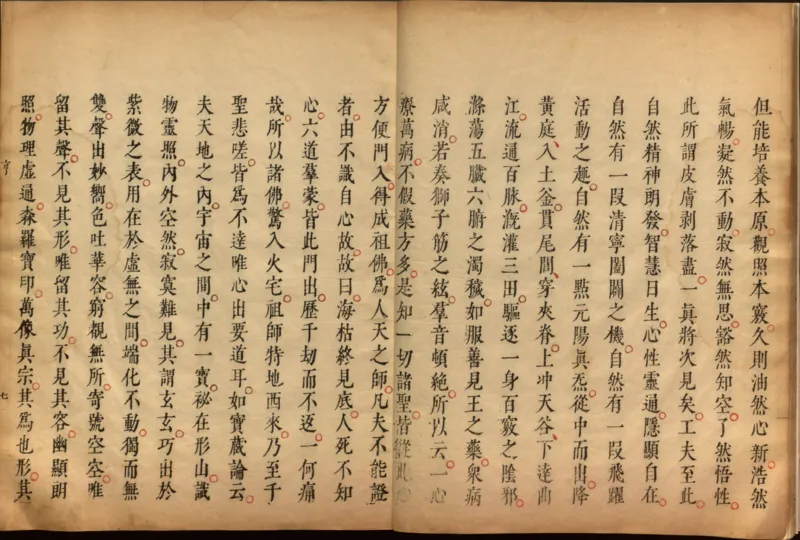 但能培養本原觀照本竅久則油然心新浩然
氣暢凝然不動寂然無思豁然知空了然悟性
此所謂皮膚剥落盡一眞將次見矣工夫至此
自然精神朗發智慧日生心性靈通隱顯自在
自然有一段清寧闔闢之機自然有一段飛躍
活動之趣自然有一點元陽眞炁從中而出降
黄庭入土釜貫尾閭穿夾脊上冲天谷下達曲
江流通百脉漑灌三田驅逐一身百竅之陰邪
滌蕩五臟六腑之濁穢如服善見王之藥衆病
咸消若奏獅子筋之絃羣音頓絶所以云一心
療萬病不假藥方多是知一切諸聖皆從此心
方便門入得成祖佛爲人天之師凡夫不能證
者由不識自心故故曰海枯終見底人死不知
心六道羣蒙皆此門出歷千劫而不返一何痛
哉所以諸佛驚入火宅祖師特地西來乃至千
聖悲嗟皆爲不達唯心出要道耳如寶藏論云
夫天地之内宇宙之間中有一寶祕在形山識
物靈照内外空然寂寞難見其謂玄玄巧出於
紫微之表用在於虛無之間端化不動獨而無
雙聲出妙嚮色吐華容窮覩無所寄號空空唯
留其聲不見其形唯留其功不見其容幽顯朗
照物理虛通森羅寶印萬像眞宗其爲也形其
七